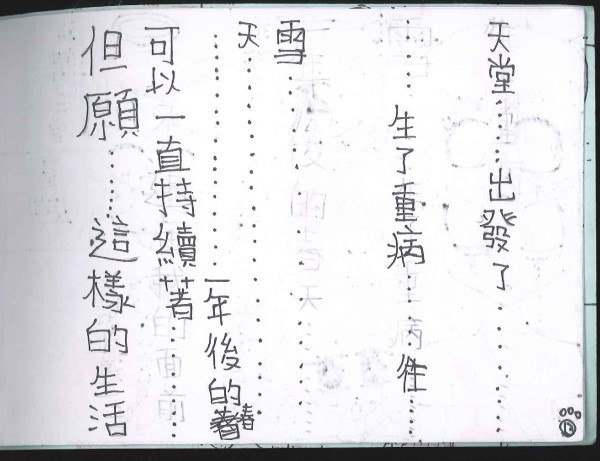 但願……這樣的生活
可以一直持續著……
……一年後的春
天……
雪……
……生了重病……往……
天堂……出發了……